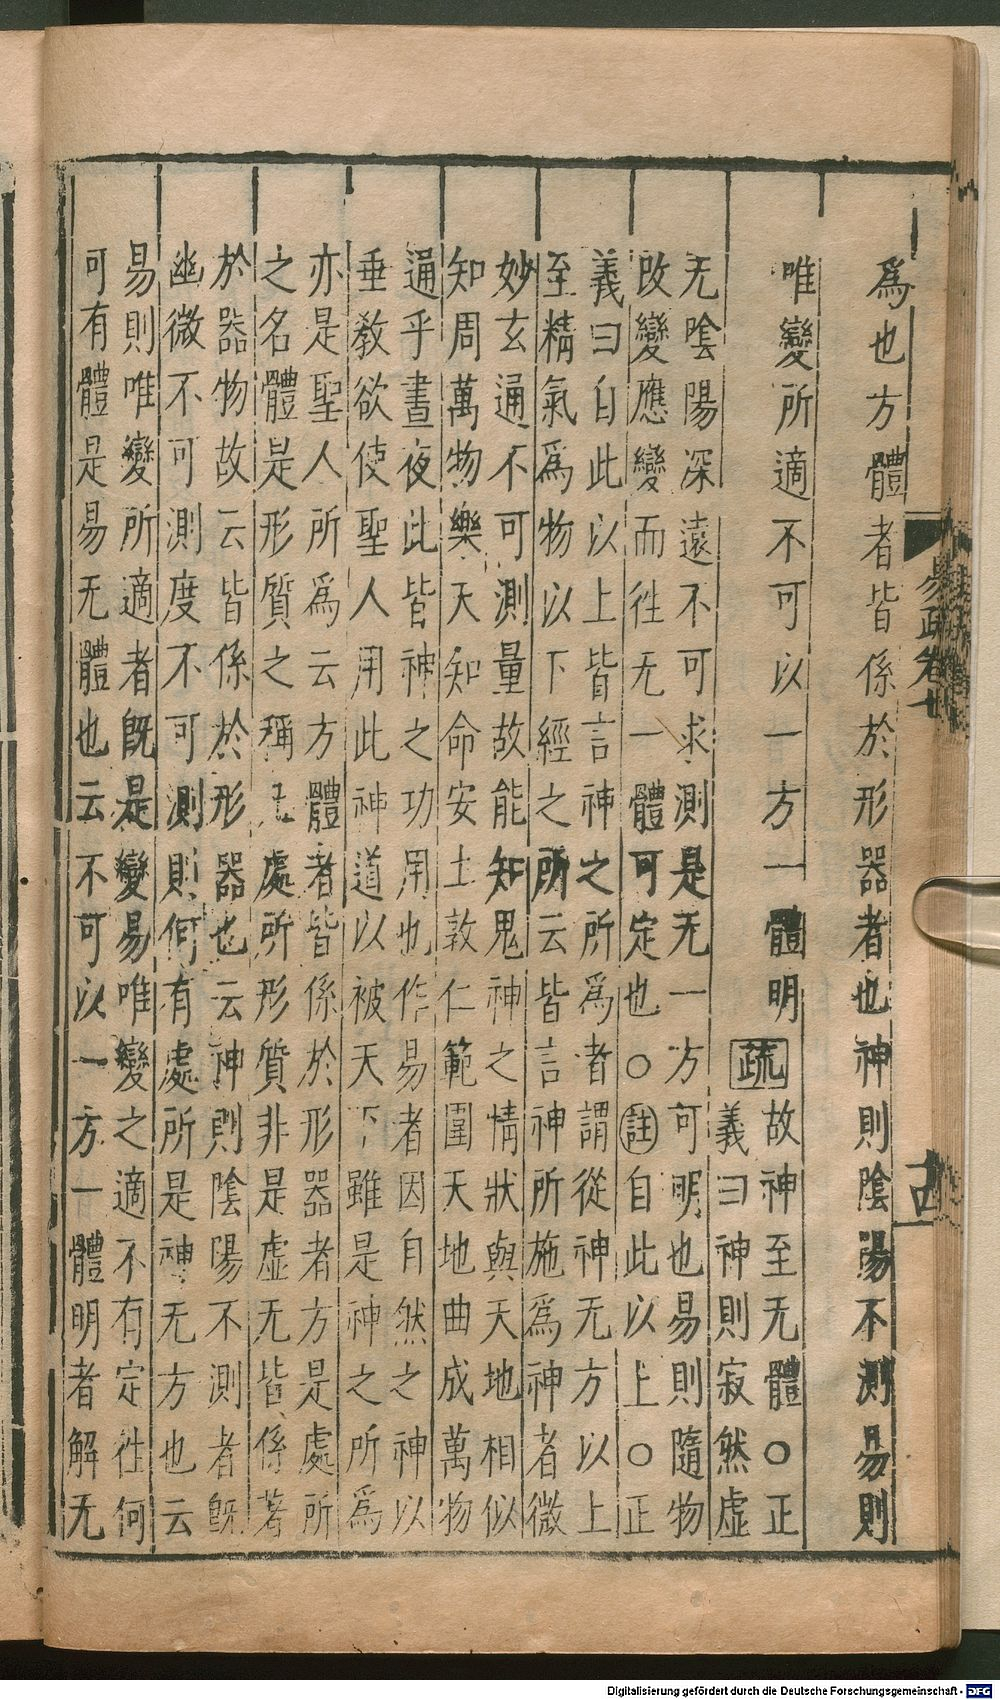 為也方體者皆係於形器者也神則隂陽不測易則
唯變所適不可以一方一體明 疏
故神至无體○正
義曰神則寂然虛
无隂陽深遠不可求測是无一方可明也易則隨物
改變應變而往无一體可定也○註自此以上○正
義曰自此以上皆言神之所為者謂從神无方以上
至精氣為物以下經之所云皆言神所施為神者微
妙玄通不可測量故能知鬼神之情狀與天地相似
知周萬物樂天知命安土敦仁範圍天地曲成萬物
通乎晝夜此皆神之功用也作易者因自然之神以
垂教欲使聖人用此神道以被天下雖是神之所為
亦是聖人所為云方體者皆係於形器者方是處所
之名體是形質之稱處所形質非是虛无皆係著
於器物故云皆係於形器也云神則隂陽不測者既
幽微不可測度不可測則何有處所是神无方也云
易則唯變所適者既是變易唯變之適不有定往何
可有體是易无體也云不可以一方一體明者解无
易疏卷七
Digitalisierung gefördert durch die Deutsche Forschungsgemeinschaft - DFG